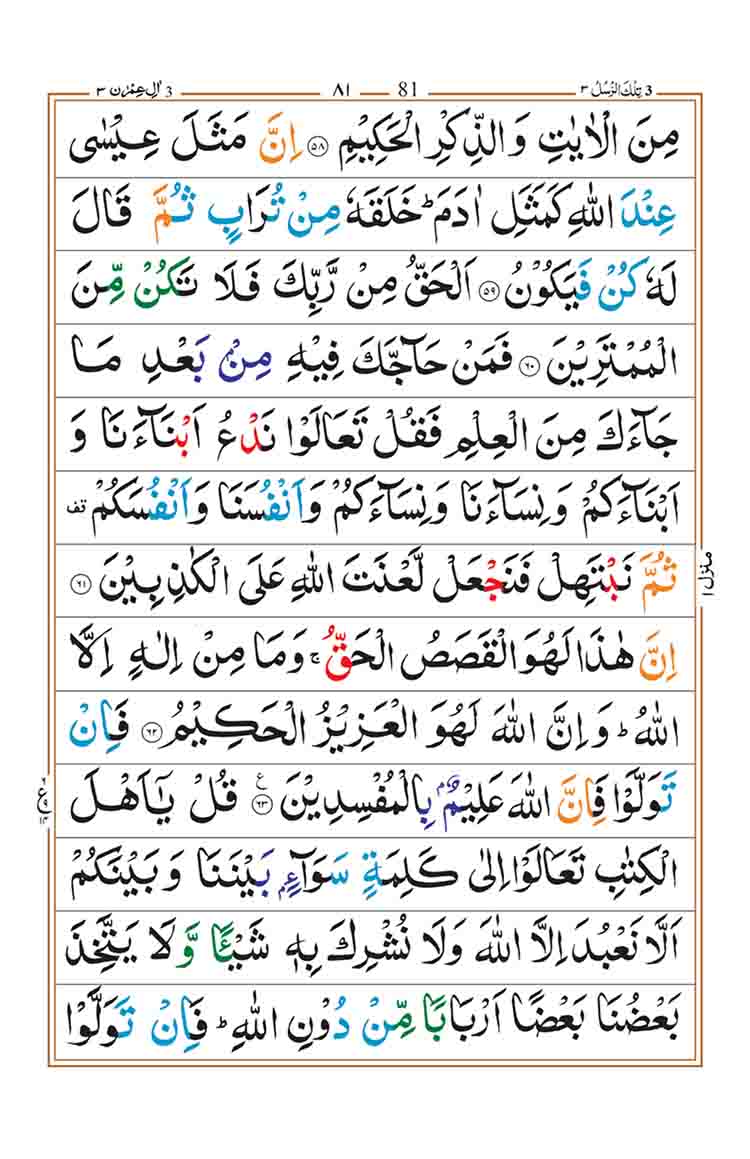 3 تِلْكَ الرُّسُلُ ٣
81 ٨١
3 اٰلِ عِمْرٰن ٣
مِنَ الْاٰيٰتِ وَالذِّكْرِ الْحَكِيْمِ ۝٥٨ اِنَّ مَثَلَ عِيْسٰى
عِنْدَ اللّٰهِ كَمَثَلِ اٰدَمَ ؕ خَلَقَهٗ مِنْ تُرَابٍ ثُمَّ قَالَ
لَهٗ كُنْ فَيَكُوْنُ ۝٥٩ اَلْحَقُّ مِنْ رَّبِّكَ فَلَا تَكُنْ مِّنَ
الْمُمْتَرِيْنَ ۝٦٠ فَمَنْ حَآجَّكَ فِيْهِ مِنْۢ بَعْدِ مَا
جَآءَكَ مِنَ الْعِلْمِ فَقُلْ تَعَالَوْا نَدْعُ اَبْنَآءَنَا وَ
اَبْنَآءَكُمْ وَنِسَآءَنَا وَنِسَآءَكُمْ وَاَنْفُسَنَا وَاَنْفُسَكُمْ قف
ثُمَّ نَبْتَهِلْ فَنَجْعَلْ لَّعْنَتَ اللّٰهِ عَلَى الْكٰذِبِيْنَ ۝٦١
منزل ١
اِنَّ هٰذَا لَهُوَ الْقَصَصُ الْحَقُّ ۚ وَمَا مِنْ اِلٰهٍ اِلَّا
اللّٰهُ ؕ وَاِنَّ اللّٰهَ لَهُوَ الْعَزِيْزُ الْحَكِيْمُ ۝٦٢ فَاِنْ
تَوَلَّوْا فَاِنَّ اللّٰهَ عَلِيْمٌۢ بِالْمُفْسِدِيْنَ ۝٦٣ ع قُلْ يٰۤاَهْلَ
٦ ع ٩ ١٤
الْكِتٰبِ تَعَالَوْا اِلٰى كَلِمَةٍ سَوَآءٍۭ بَيْنَنَا وَبَيْنَكُمْ
اَلَّا نَعْبُدَ اِلَّا اللّٰهَ وَلَا نُشْرِكَ بِهٖ شَيْـًٔا وَّلَا يَتَّخِذَ
بَعْضُنَا بَعْضًا اَرْبَابًا مِّنْ دُوْنِ اللّٰهِ ؕ فَاِنْ تَوَلَّوْا